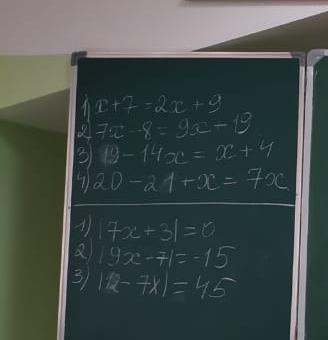 1) x+7=2x+9
2) 7x-8=9x+19
3) 19-14x=x+4
4) 20-21+x=7x
1) |7x+3|=0
2) |9x-7|=-15
3) |12-7x|=45